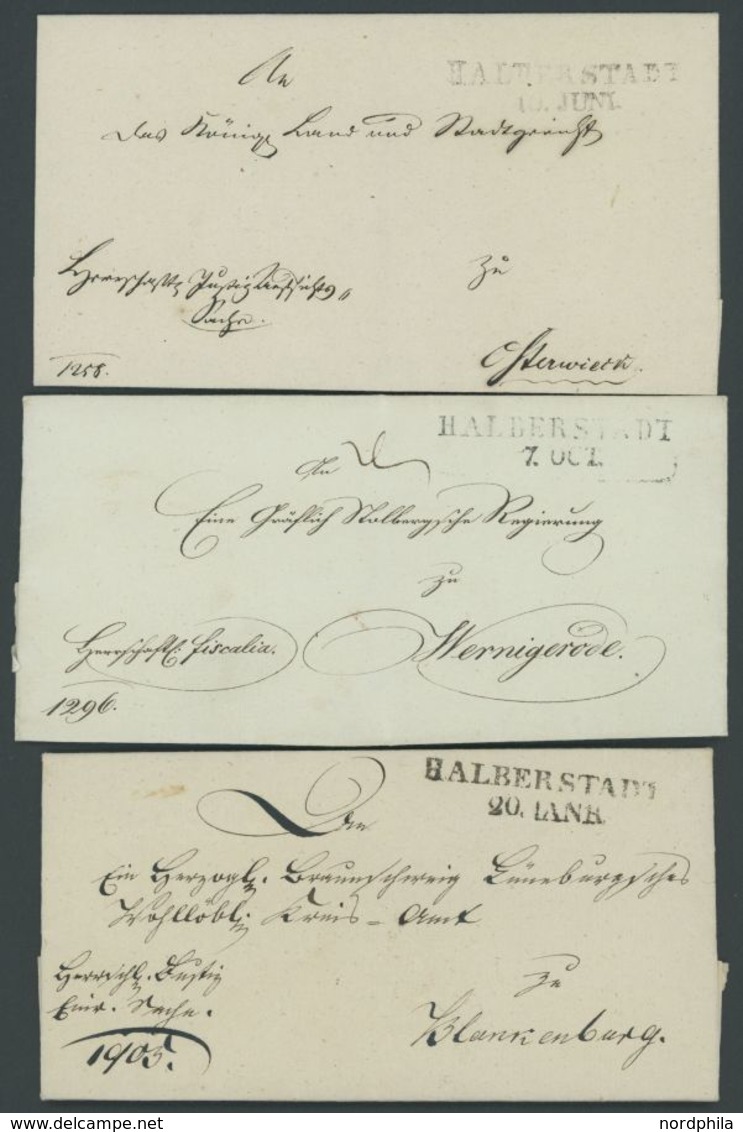 An
HALBERSTADT
10. JUNI.
das Königl. Land und Stadtgericht
Herrschaftl. Justiz Aufsichts
Sache.
zu
1258.
Osterwieck.
HALBERSTADT
7. OCT.
An
Eine Gräflich Stolbergsche Regierung
zu
Herrschaftl: fiscalia.
Wernigerode.
1296.
HALBERSTADT
20. IANR
An
Ein Herzogl. Braunschweig Lüneburgsches
Wohllöbl. Kreis-Amt
Herrschl. Justiz
Sache.
zu
1905.
Blankenburg.
nordphila